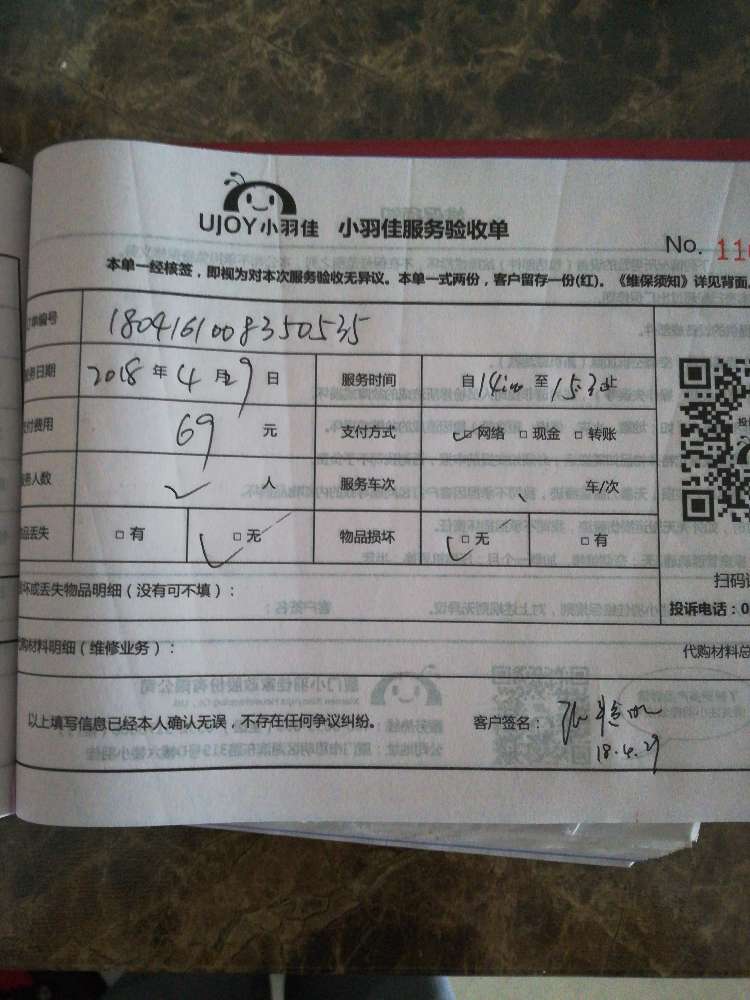 UJOY小羽佳 小羽佳服务验收单
No. 11
本单一经核签，即视为对本次服务验收无异议。本单一式两份，客户留存一份(红)。《维保须知》详见背面
单编号 1804161008350535
务日期 2018 年 4 月 29 日 服务时间 自 14:00 至 15:30 止
支付费用 69 元 支付方式 ☑ 网络 □ 现金 □ 转账
务人数 人 服务车次 车/次
品丢失 □ 有 ☑ 无 物品损坏 ☑ 无 □ 有
坏或丢失物品明细（没有可不填）：
扫码
投诉电话：0
代购材料明细（维修业务）：
代购材料总
以上填写信息已经本人确认无误，不存在任何争议纠纷。 客户签名：
18.4.29